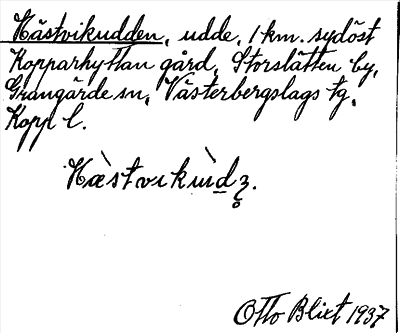 Hästvikudden, udde, 1 km. sydöst
Kopparhyttan gård, Storslätten by,
Grangärde sn, Västerbergslags tg,
Kopp l.
Hæstvikùd
Otto Blixt 1937